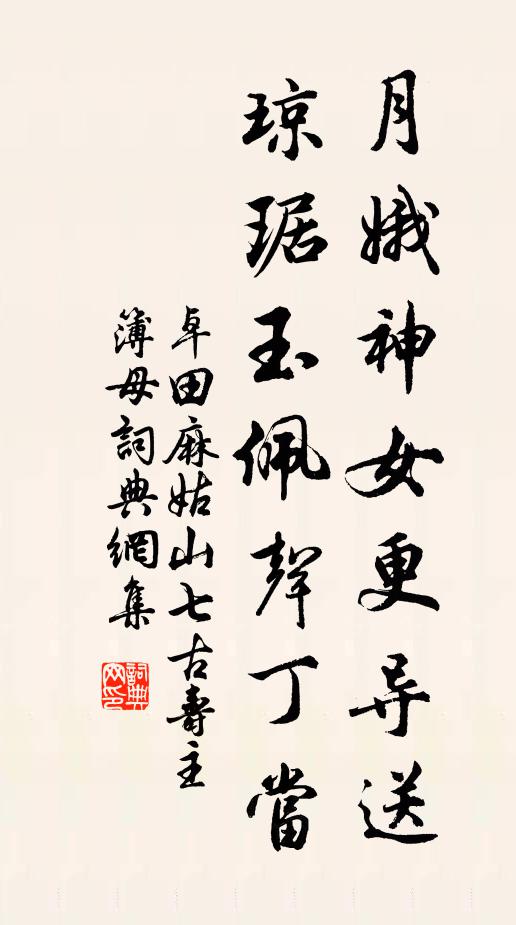 月娥神女更导送
琼琚玉佩聲丁當
卓田麻姑山七古壽主
簿母詞典網集
詞典网印